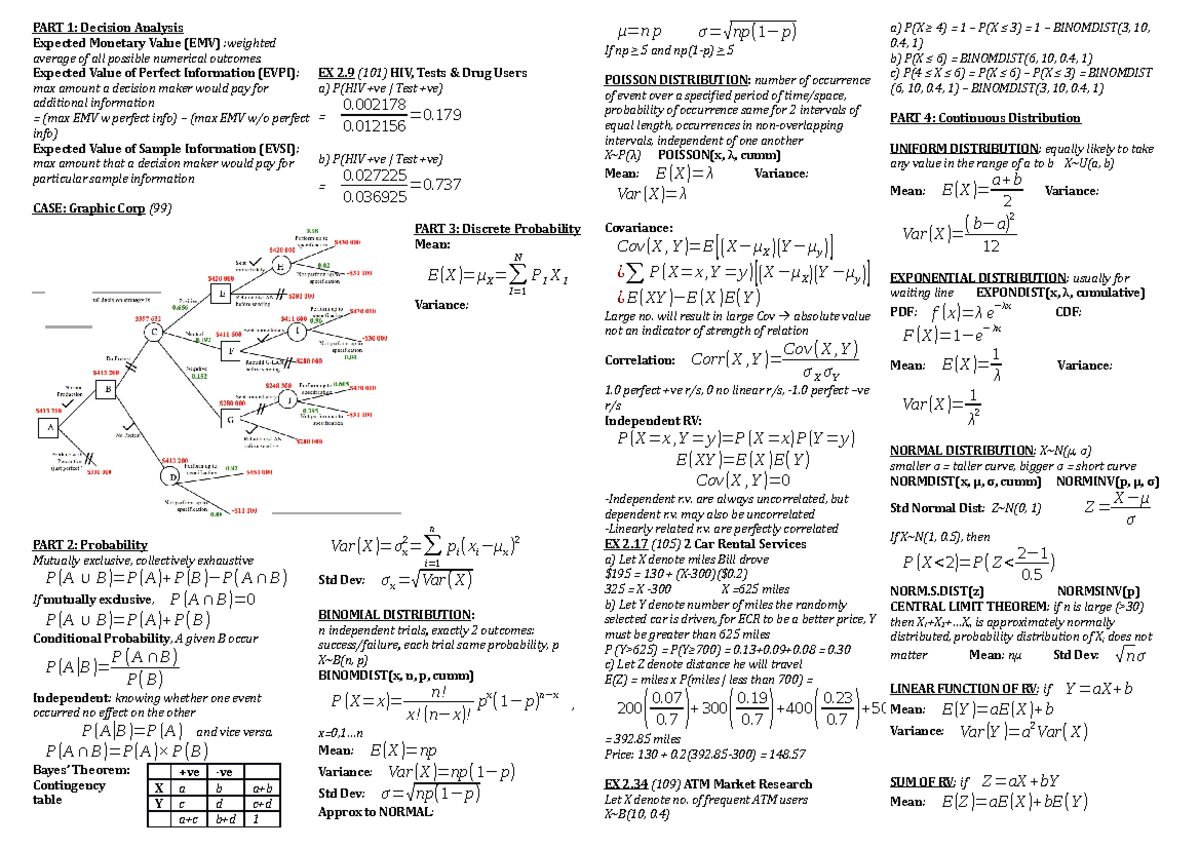 PART 1: Decision Analysis
Expected Monetary Value (EMV) :weighted
average of all possible numerical outcomes.
Expected Value of Perfect Information (EVPI):
max amount a decision maker would pay for
additional information
= (max EMV w perfect info) – (max EMV w/o perfect
info)
Expected Value of Sample Information (EVSI):
max amount that a decision maker would pay for
particular sample information
CASE: Graphic Corp (99)
EX 2.9 (101) HIV, Tests & Drug Users
a) P(HIV +ve | Test +ve)
= 0.002178 / 0.012156 = 0.179
b) P(HIV +ve | Test +ve)
= 0.027225 / 0.036925 = 0.737
val decision strategy is
A
B
C
D
E
F
G
H
I
J
$413 200
$413 200
$397 632
$420 000
$420 000
$411 600
$411 600
$280 000
$248 300
No Pretest
Negative
0.152
0.656
0.98
0.02
0.96
0.605
0.395
0.92
Perform up to
specification
Not perform up to
specification
$430 000
$280 000
PART 2: Probability
Mutually exclusive, collectively exhaustive
P(A ∪ B)=P(A)+P(B)−P(A∩B)
If mutually exclusive, P(A∩B)=0
P(A ∪ B)=P(A)+P(B)
Conditional Probability, A given B occur
P(A|B)= P(A∩B) / P(B)
Independent: knowing whether one event
occurred no effect on the other
P(A|B)=P(A) and vice versa.
P(A∩B)=P(A)×P(B)
Bayes' Theorem:
Contingency
table
+ve -ve
X a b a+b
Y c d c+d
a+c b+d 1
PART 3: Discrete Probability
Mean:
E(X)=μX=∑ I=1 N PI XI
Variance:
Var(X)=σx²=∑ i=1 n pi(xi−μx)²
Std Dev: σx=√Var(X)
BINOMIAL DISTRIBUTION:
n independent trials, exactly 2 outcomes:
success/failure, each trial same probability, p
X~B(n, p)
BINOMDIST(x, n, p, cumm)
P(X=x)= n! / x!(n−x)! pˣ(1−p)ⁿ⁻ˣ ,
x=0,1...n
Mean: E(X)=np
Variance: Var(X)=np(1−p)
Std Dev: σ=√np(1−p)
Approx to NORMAL:
μ=n p σ=√np(1−p)
If np ≥ 5 and np(1-p) ≥ 5
POISSON DISTRIBUTION: number of occurrence
of event over a specified period of time/space,
probability of occurrence same for 2 intervals of
equal length, occurrences in non-overlapping
intervals, independent of one another
X~P(λ) POISSON(x, λ, cumm)
Mean: E(X)=λ Variance:
Var(X)=λ
Covariance:
Cov(X,Y)=E[(X−μX)(Y−μy)]
¿∑ P(X=x,Y=y)[(X−μX)(Y−μy)]
¿E(XY)−E(X)E(Y)
Large no. will result in large Cov → absolute value
not an indicator of strength of relation
Correlation: Corr(X,Y)= Cov(X,Y) / σXσY
1.0 perfect +ve r/s, 0 no linear r/s, -1.0 perfect –ve
r/s
Independent RV:
P(X=x,Y=y)=P(X=x)P(Y=y)
E(XY)=E(X)E(Y)
Cov(X,Y)=0
-Independent r.v. are always uncorrelated, but
dependent r.v. may also be uncorrelated
-Linearly related r.v. are perfectly correlated
EX 2.17 (105) 2 Car Rental Services
a) Let X denote miles Bill drove
$195 = 130 + (X-300)($0.2)
325 = X -300 X =625 miles
b) Let Y denote number of miles the randomly
selected car is driven, for ECR to be a better price, Y
must be greater than 625 miles
P (Y>625) = P(Y≥700) = 0.13+0.09+0.08 = 0.30
c) Let Z denote distance he will travel
E(Z) = miles x P(miles | less than 700) =
200(0.07/0.7)+300(0.19/0.7)+400(0.23/0.7)+50
= 392.85 miles
Price: 130 + 0.2(392.85-300) = 148.57
EX 2.34 (109) ATM Market Research
Let X denote no. of frequent ATM users
X~B(10, 0.4)
a) P(X≥ 4) = 1 – P(X ≤ 3) = 1 – BINOMDIST(3, 10,
0.4, 1)
b) P(X ≤ 6) = BINOMDIST(6, 10, 0.4, 1)
c) P(4 ≤ X ≤ 6) = P(X ≤ 6) – P(X ≤ 3) = BINOMDIST
(6, 10, 0.4, 1) – BINOMDIST(3, 10, 0.4, 1)
PART 4: Continuous Distribution
UNIFORM DISTRIBUTION: equally likely to take
any value in the range of a to b X~U(a, b)
Mean: E(X)= a+b / 2 Variance:
Var(X)= (b−a)² / 12
EXPONENTIAL DISTRIBUTION: usually for
waiting line EXPONDIST(x, λ, cumulative)
PDF: f(x)=λ e^−λx CDF:
F(X)=1−e^−λx
Mean: E(X)= 1/λ Variance:
Var(X)= 1/λ²
NORMAL DISTRIBUTION: X~N(μ, σ)
smaller σ = taller curve, bigger σ = short curve
NORMDIST(x, μ, σ, cumm) NORMINV(p, μ, σ)
Std Normal Dist: Z~N(0, 1) Z= X−μ / σ
If X~N(1, 0.5), then
P(X<2)=P(Z< 2−1 / 0.5)
NORM.S.DIST(z) NORMSINV(p)
CENTRAL LIMIT THEOREM: if n is large (>30)
then X₁+X₂+...Xₙ is approximately normally
distributed, probability distribution of Xᵢ does not
matter Mean: nμ Std Dev: √nσ
LINEAR FUNCTION OF RV: if Y=aX+b
Mean: E(Y)=aE(X)+b
Variance: Var(Y)=a²Var(X)
SUM OF RV: if Z=aX+bY
Mean: E(Z)=aE(X)+bE(Y)